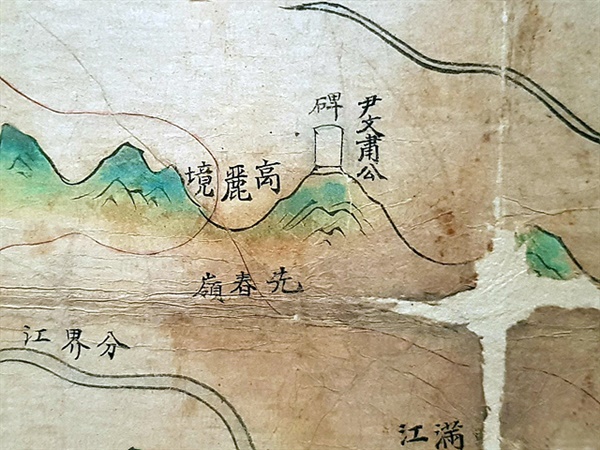 尹文肅公
碑
高麗境
先春嶺
分界江
滿江